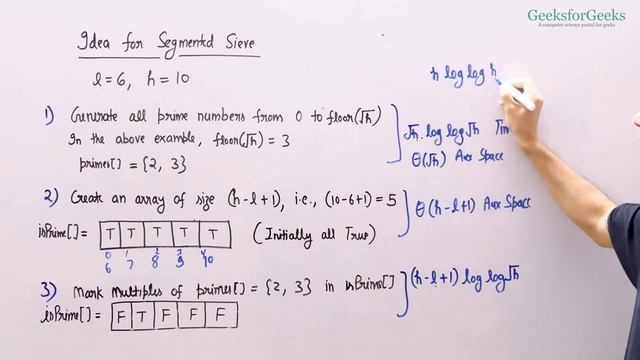 GeeksforGeeks
A computer science portal for geeks
Idea for Segmented Sieve
l=6, h=10
h log log h
1) Generate all prime numbers from 0 to floor(√h)
In the above example, floor(√h) = 3
primes[] = {2, 3}
√h. log log √h Tim
θ(√h) Aux Space
2) Create an array of size (h-l+1), i.e., (10-6+1) = 5
θ(h-l+1) Aux Space
isPrime[] = T T T T T (Initially all True)
0 1 2 3 4
6 7 8 9 10
3) Mark Multiples of primes[] = {2, 3} in isPrime[]
(h-l+1) log log √h
isPrime[] = F T F F F